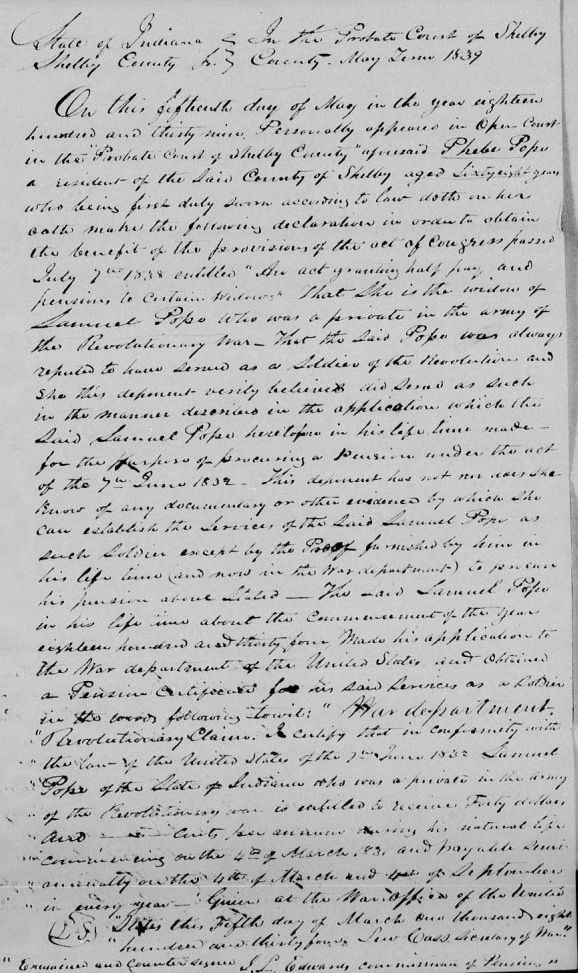 State of Indiana } In the Probate Court of Shelby
Shelby County Sc. } County. May Term 1839
On this fifteenth day of May in the year eighteen
hundred and thirty nine, Personally appeared in Open Court
in the "Probate Court of Shelby County" aforesaid Phebe Pope
a resident of the Said County of Shelby aged Sixty eight years
who being first duly sworn according to law doth on her
oath make the following declaration in order to obtain
the benefit of the provisions of the act of Congress passed
July 7th 1838 entitled "An act granting half pay and
pensions to Certain Widows" That She is the widow of
Samuel Pope who was a private in the army of
the Revolutionary War – That the Said Pope was always
reputed to have served as a Soldier of the Revolution and
She this deponent verily believes did serve as such
in the manner described in the application which the
Said Samuel Pope heretofore in his life time made –
for the purpose of procuring a Pension under the act
of the 7th June 1832 – This deponent has not nor does she
know of any documentary or other evidence by which she
can establish the Services of the Said Samuel Pope as
such Soldier except by the Proof furnished by him in
his life time (and now in the War department) to procure
his pension above Stated – The said Samuel Pope
in his life time about the Commencement of the year
eighteen hundred and thirty four Made his application to
the War department of the United States and Obtained
a Pension Certificate for his said Services as a Soldier
in the words following Towit: "War department,
"Revolutionary Claim. I certify that in conformity with
"the law of the United States of the 7th June 1832 Samuel
"Pope of the State of Indiana who was a private in the Army
"of the Revolutionary war is entitled to receive Forty dollars
"and Cents per annum during his natural life
"commencing on the 4th of March 183 and payable Semi-
"annually on the 4th of March and 4th of September
"in every year – Given at the War Office of the United
(L.S) "States this Fifth day of March one thousand eight
"hundred and thirty four Lew Cass, Secretary of War"
"Examined and Countersigned J. L. Edwards commissioner of Pensions"